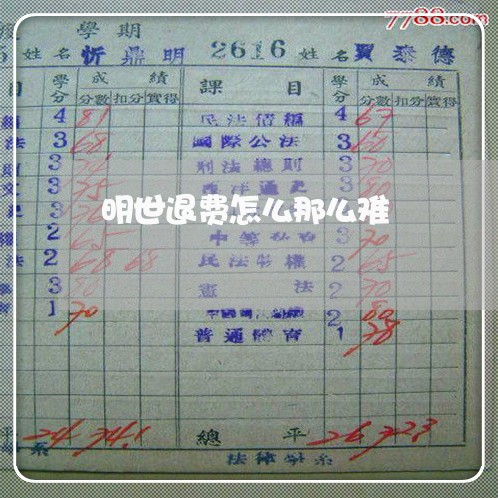 7788.com
學期
姓名 忻鼎明 2616 姓名 賈泰德
目 學分 成績 課目 學分 成績
分數 扣分 實得 分數 扣分 實得
4 81 民法債編 4 67
法 3 68 國際公法 3 60
3 刑法總則 3 70
文 3 75 西洋通史 3 80
明世退费怎么那么难
權 2 65 3 70
法 2 68 68 民法物權 2 65
3 80 憲法 2 70
1 70 2 80
普通體育 1 78
平 24 74.1 總平 26 72.3
系 法律學系